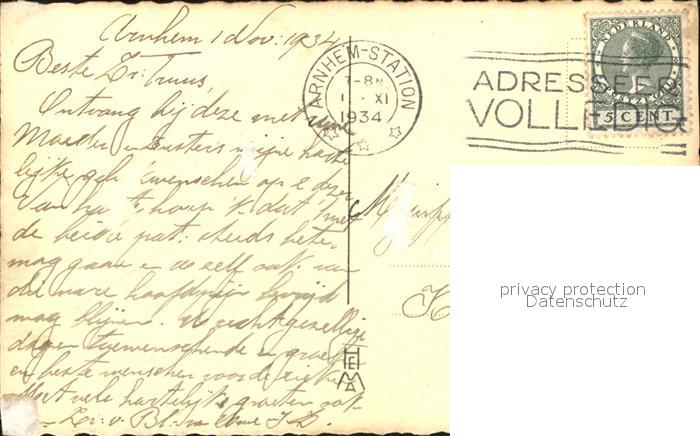 Arnhem 1 Nov. 1934
Beste Zr. Truus,
Ontvang bij deze met uw
Moeder en Zusters mijne harte
lijke gel. wenschen op 2 dezer
Van harte hoop 'k dat 't met
de beide pat. steeds beter
mag gaan en U zelf ook van
die nare hoofdpijn bevrijd
mag blijven. U recht gezellige
dagen toewenschende en groeten
en beste wenschen voor de zieke
Met vele hartelijke groeten ook
Zr. v. Bl.
ARNHEM-STATION
7-8 N
1 XI
1934
ADRESSEER
VOLLEDIG
NEDERLAND
5 CENT
HEMA
privacy protection
Datenschutz